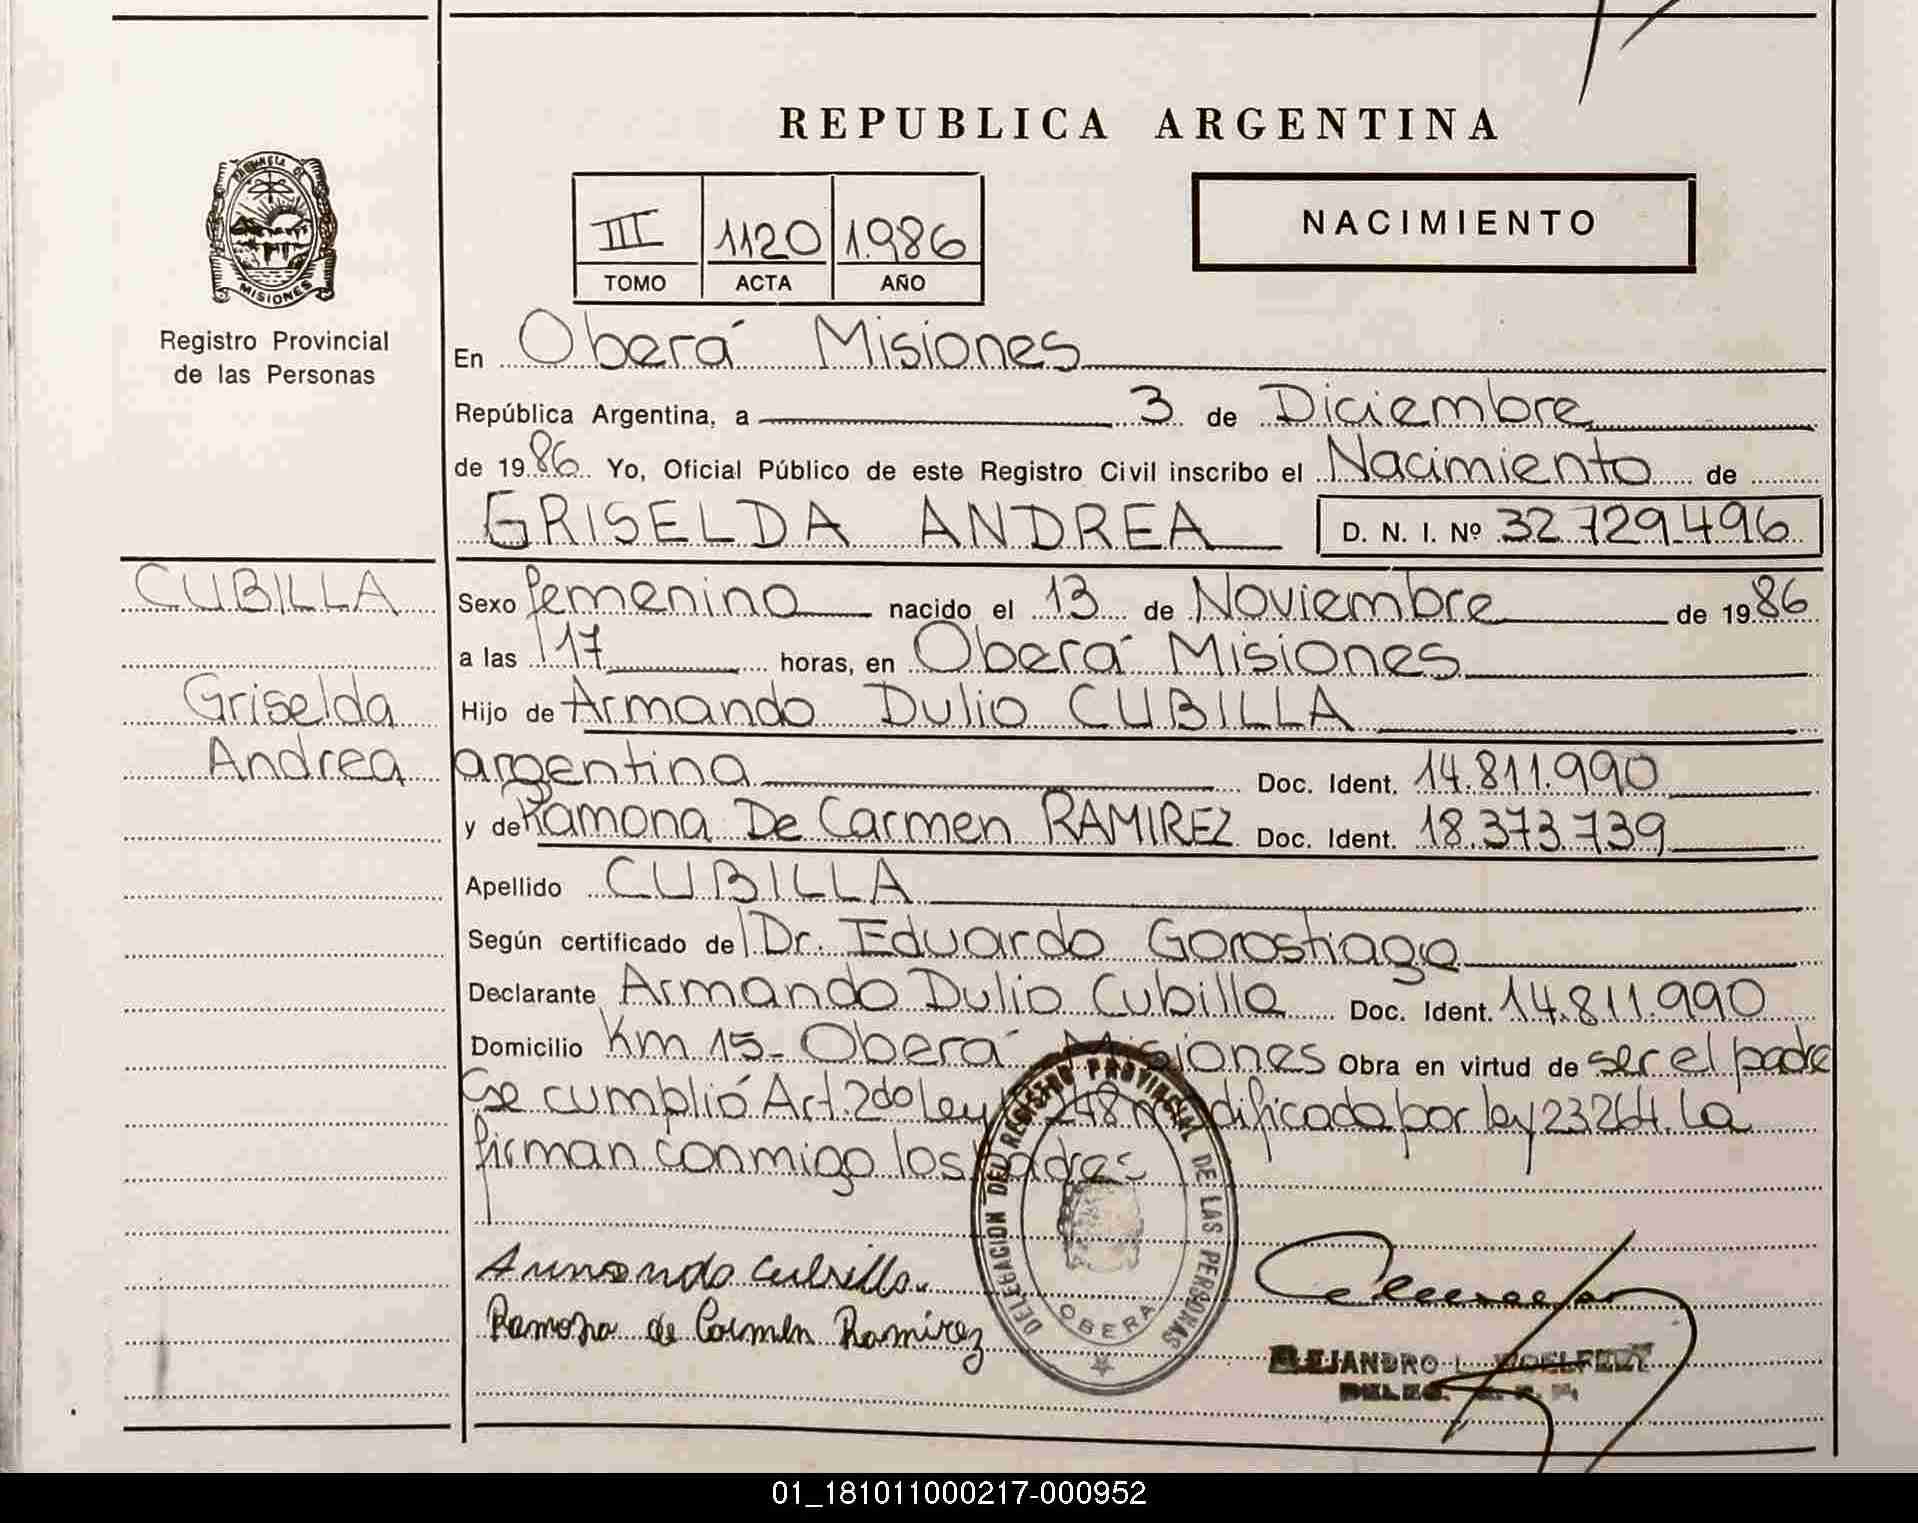 REPUBLICA ARGENTINA
PROVINCIA DE
MISIONES
Registro Provincial
de las Personas
III 1120 1.986
TOMO ACTA AÑO
NACIMIENTO
En Oberá Misiones
República Argentina, a 3 de Diciembre
de 1986 Yo, Oficial Público de este Registro Civil inscribo el Nacimiento de
GRISELDA ANDREA D. N. I. Nº 32.729.496
CUBILLA
Griselda
Andrea
Sexo femenino nacido el 13 de Noviembre de 1986
a las 17 horas, en Oberá Misiones
Hijo de Armando Dulio CUBILLA
argentina Doc. Ident. 14.811.990
y de Ramona De Carmen RAMIREZ Doc. Ident. 18.373.739
Apellido CUBILLA
Según certificado de Dr. Eduardo Gorostiaga
Declarante Armando Dulio Cubilla Doc. Ident. 14.811.990
Domicilio Km 15- Oberá Misiones Obra en virtud de ser el padre
Se cumplió Art. 2do ley 248 modificada por ley 23264. La
firman conmigo los padres
Armando Cubilla.
Ramona de Carmen Ramirez
DELEGACION DEL REGISTRO PROVINCIAL DE LAS PERSONAS
OBERA
ALEJANDRO L.
DELEG.
01_181011000217-000952